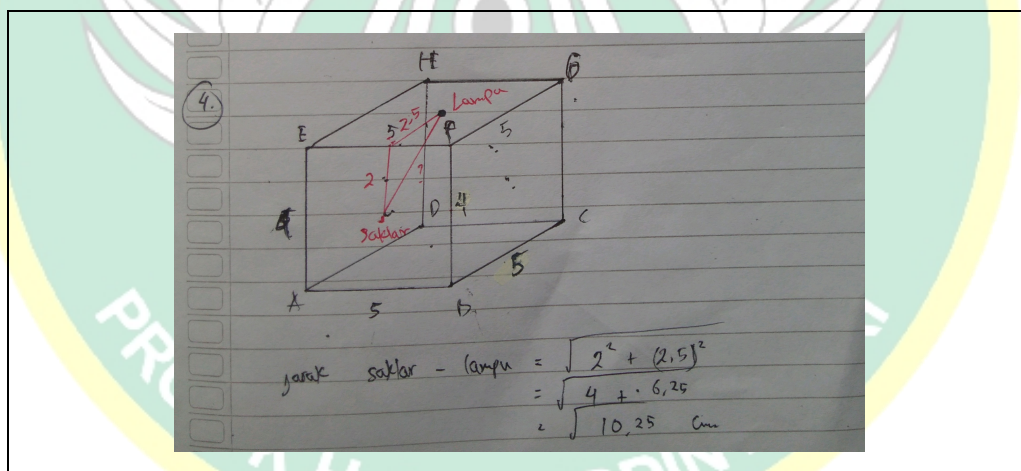 4.
H
G
Lampu
E
5
2.5
F
5
2
?
D
4
C
saklar
4
A
5
B
5
jarak saklar - lampu = √2² + (2,5)²
= √4 + 6,25
= √10,25 cm